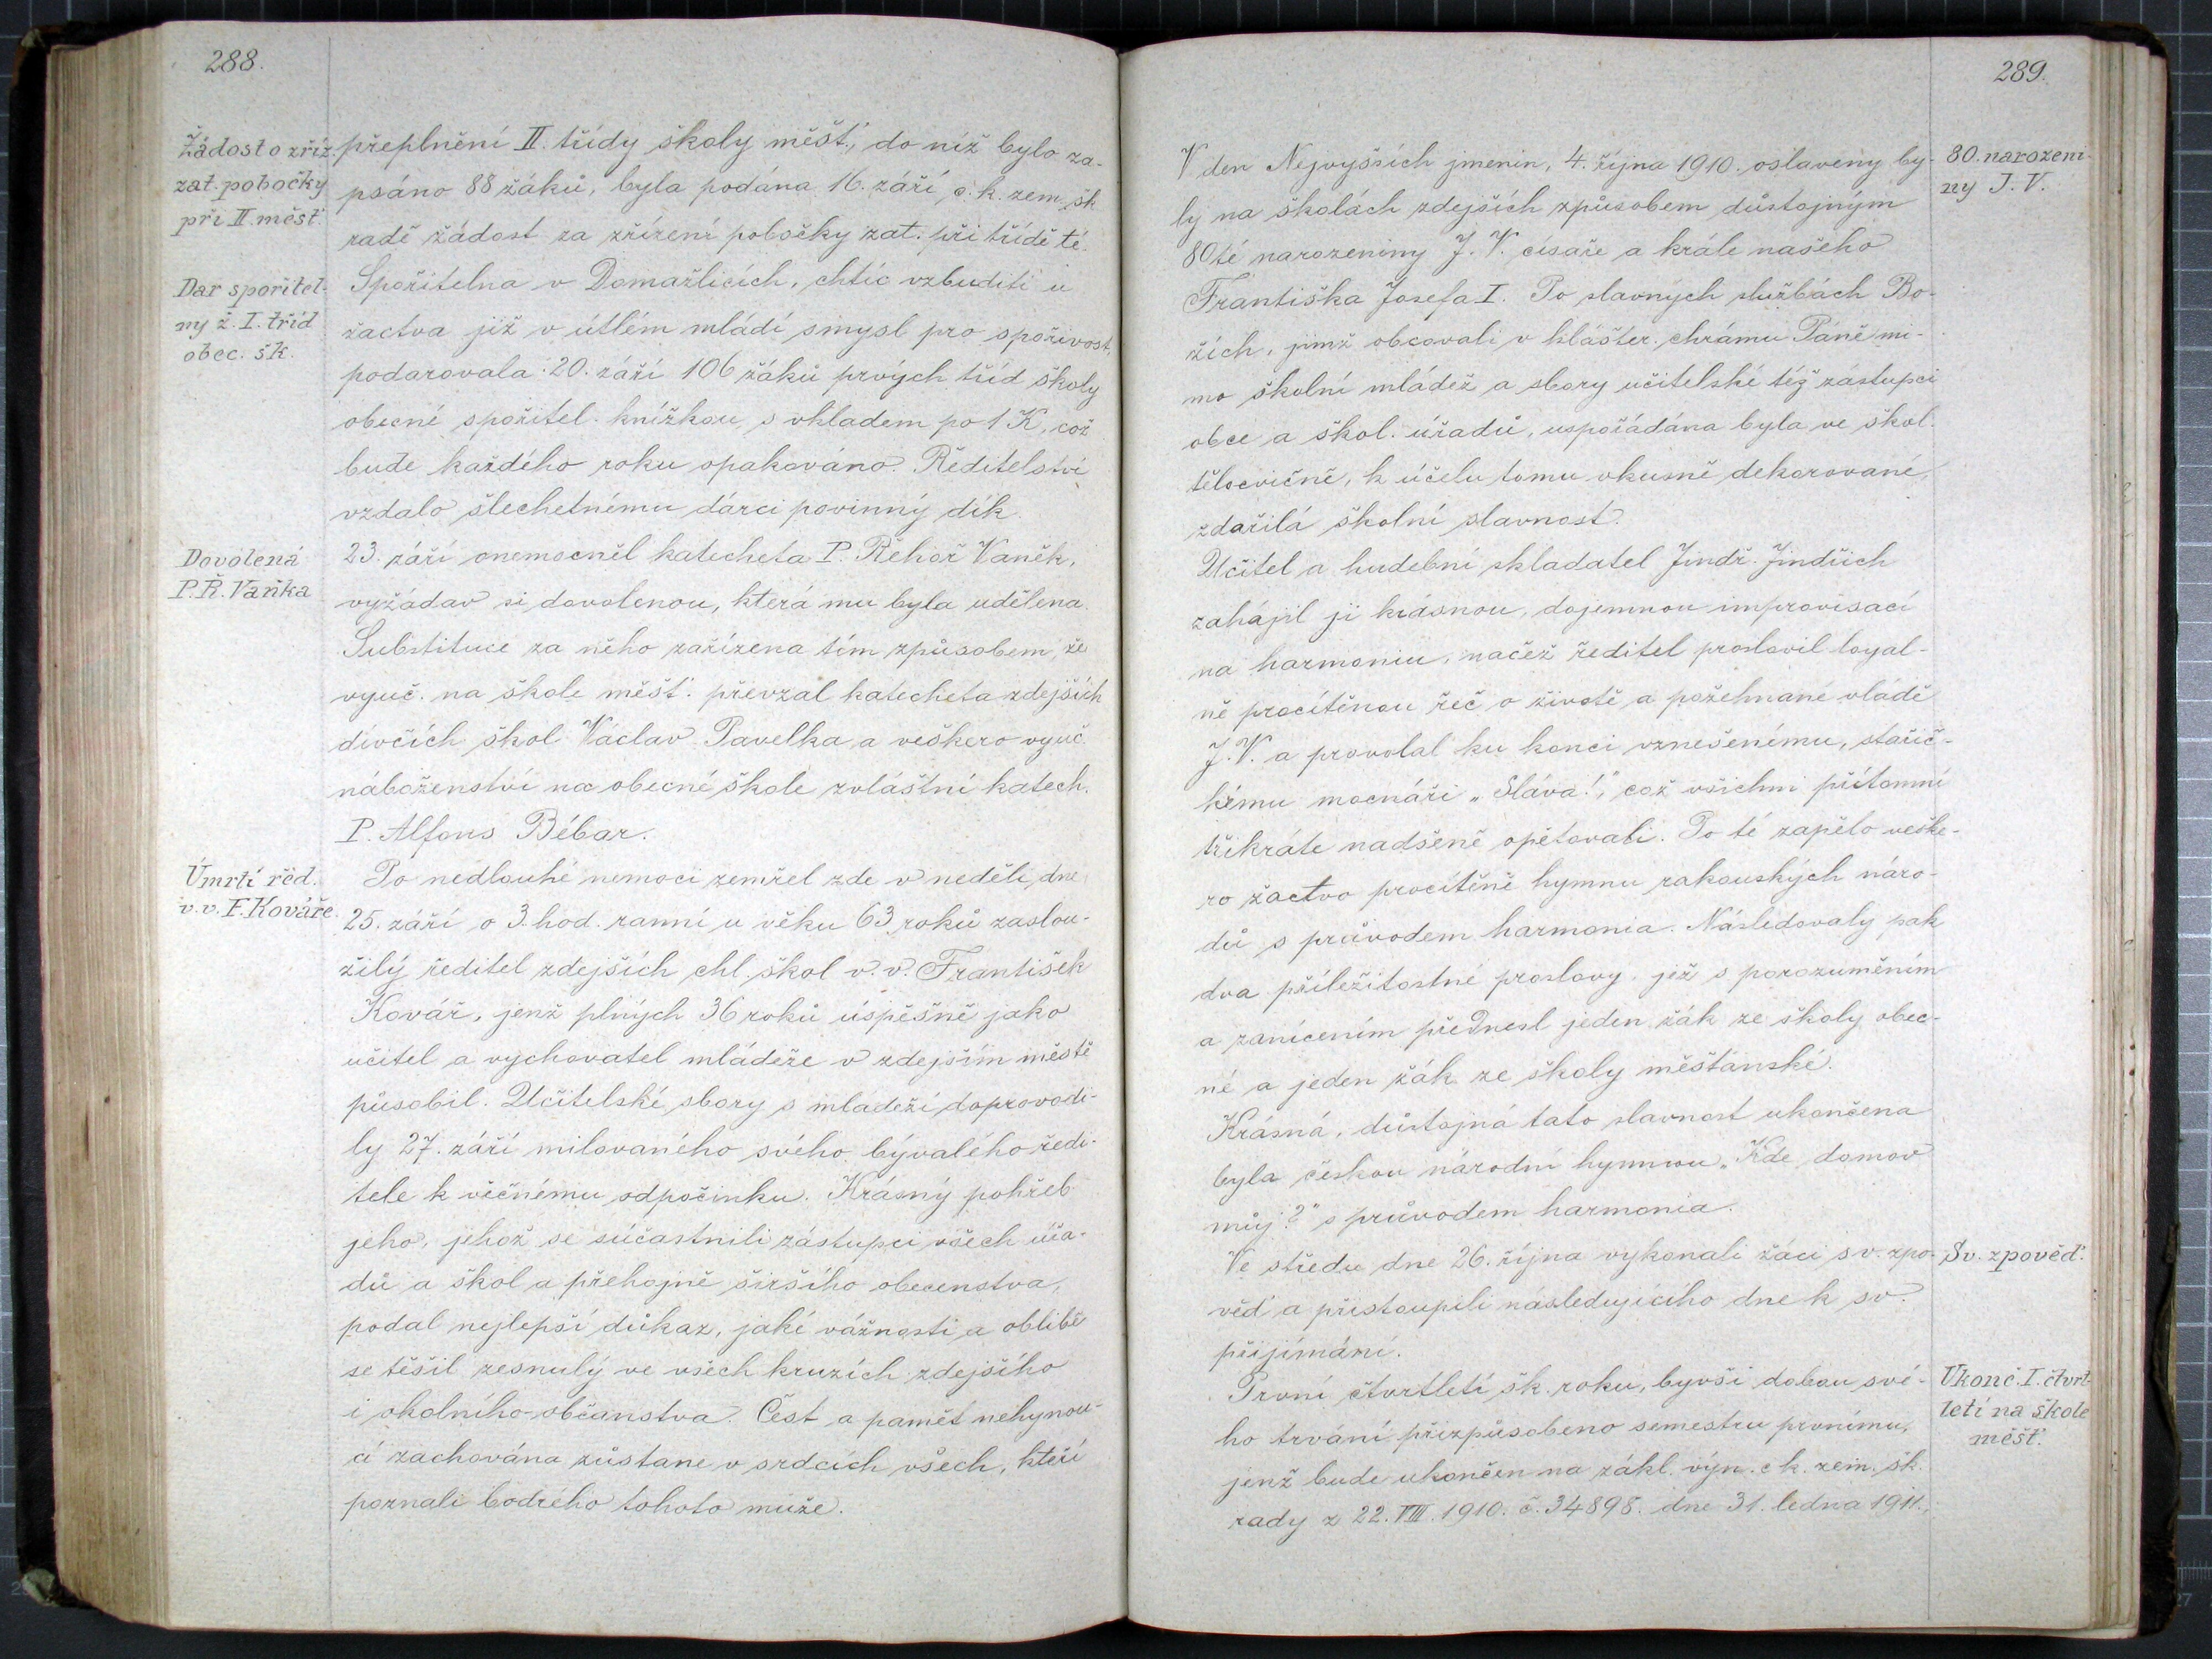 288.
Žádost o zříz.
zat. pobočky
při II. měšť.
přeplnění II. třídy školy měšť., do níž bylo za-
psáno 88 žáků, byla podána 16. září c. k. zem. šk.
radě žádost za zřízení pobočky zat. při třídě té.
Dar spořitel-
ny ž. I. tříd
obec. šk.
Spořitelna v Domažlicích, chtíc vzbuditi u
žactva již v útlém mládí smysl pro spořivost,
podarovala 20. září 106 žáků prvých tříd školy
obecné spořitel. knížkou s vkladem po 1 K, což
bude každého roku opakováno. Ředitelství
vzdalo šlechetnému dárci povinný dík.
Dovolená
P. Ř. Vaňka
23. září onemocněl katecheta P. Řehoř Vaněk,
vyžádav si dovolenou, která mu byla udělena.
Substituce za něho zařízena tím způsobem, že
vyuč. na škole měšť. převzal katecheta zdejších
dívčích škol Václav Pavelka a veškero vyuč.
náboženství na obecné škole zvláštní katech.
P. Alfons Bébar.
Úmrtí řed.
v. v. F. Kováře.
Po nedlouhé nemoci zemřel zde v neděli, dne
25. září o 3. hod. ranní u věku 63 roků zaslou-
žilý ředitel zdejších chl. škol v. v. František
Kovář, jenž plných 36 roků úspěšně jako
učitel a vychovatel mládeže v zdejším městě
působil. Učitelské sbory s mládeží doprovodi-
ly 27. září milovaného svého bývalého ředi-
tele k věčnému odpočinku. Krásný pohřeb
jeho, jehož se súčastnili zástupci všech úřa-
dů a škol a přehojně širšího obecenstva,
podal nejlepší důkaz, jaké vážnosti a oblibě
se těšil zesnulý ve všech kruzích zdejšího
i okolního občanstva. Čest a paměť nehynou-
cí zachována zůstane v srdcích všech, kteří
poznali bodrého tohoto muže.
289.
V den Nejvyšších jmenin, 4. října 1910. oslaveny by-
ly na školách zdejších způsobem důstojným
80té narozeniny J. V. císaře a krále našeho
Františka Josefa I. Po slavných službách Bo-
žích, jimž obcovali v klášter. chrámu Páně mi-
mo školní mládež a sbory učitelské též zástupci
obce a škol. úřadů, uspořádána byla ve škol.
tělocvičně, k účelu tomu vkusně dekorované,
zdařilá školní slavnost.
80. narozeni-
ny J. V.
Učitel a hudební skladatel Jindř. Jindřich
zahájil ji krásnou, dojemnou improvisací
na harmoniu, načež ředitel proslovil loyal-
ně procítěnou řeč o životě a požehnané vládě
J. V. a provolal ku konci vznešenému, stařič-
kému mocnáři „Sláva!", což všichni přítomní
třikráte nadšeně opětovali. Po té zapělo veške-
ro žactvo procítěně hymnu rakouských náro-
dů s průvodem harmonia. Následovaly pak
dva příležitostné proslovy, jež s porozuměním
a zanícením přednesl jeden žák ze školy obec-
né a jeden žák ze školy měšťanské.
Krásná, důstojná tato slavnost ukončena
byla českou národní hymnou „Kde domov
můj?" s průvodem harmonia.
Ve středu dne 26. října vykonali žáci sv. zpo-
věď a přistoupili následujícího dne k sv.
přijímání.
Sv. zpověď.
První čtvrtletí šk. roku, byvši dobou své-
ho trvání přizpůsobeno semestru prvnímu,
jenž bude ukončen na zákl. výn. c. k. zem. šk.
rady z 22. VIII. 1910. č. 34898. dne 31. ledna 1911.,
Ukonč. I. čtvrt-
letí na škole
měšť.